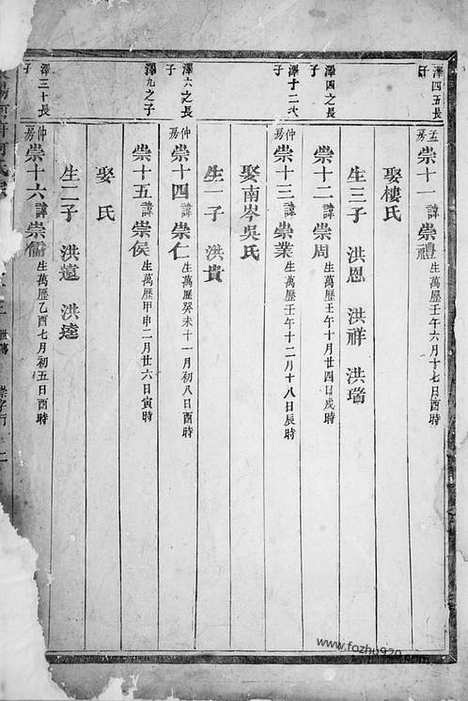 澤四五長子
孟房 崇十一 諱崇禮 生萬歷壬午六月十七日酉時
娶樓氏
生三子 洪恩 洪祥 洪瑞
澤四之長子
崇十二 諱崇周 生萬歷壬午十月廿四日戌時
澤十二次子
仲房 崇十三 諱崇業 生萬歷壬午十二月十八日辰時
娶南岑吳氏
生一子 洪貴
澤六之長子
仲房 崇十四 諱崇仁 生萬歷癸未十一月初八日酉時
澤九之子
崇十五 諱崇侯 生萬歷甲申二月廿六日寅時
娶 氏
生二子 洪遠 洪逵
澤三十長子
仲房 崇十六 諱崇儒 生萬歷乙酉七月初五日酉時
崇字行
www.fozhu920.com